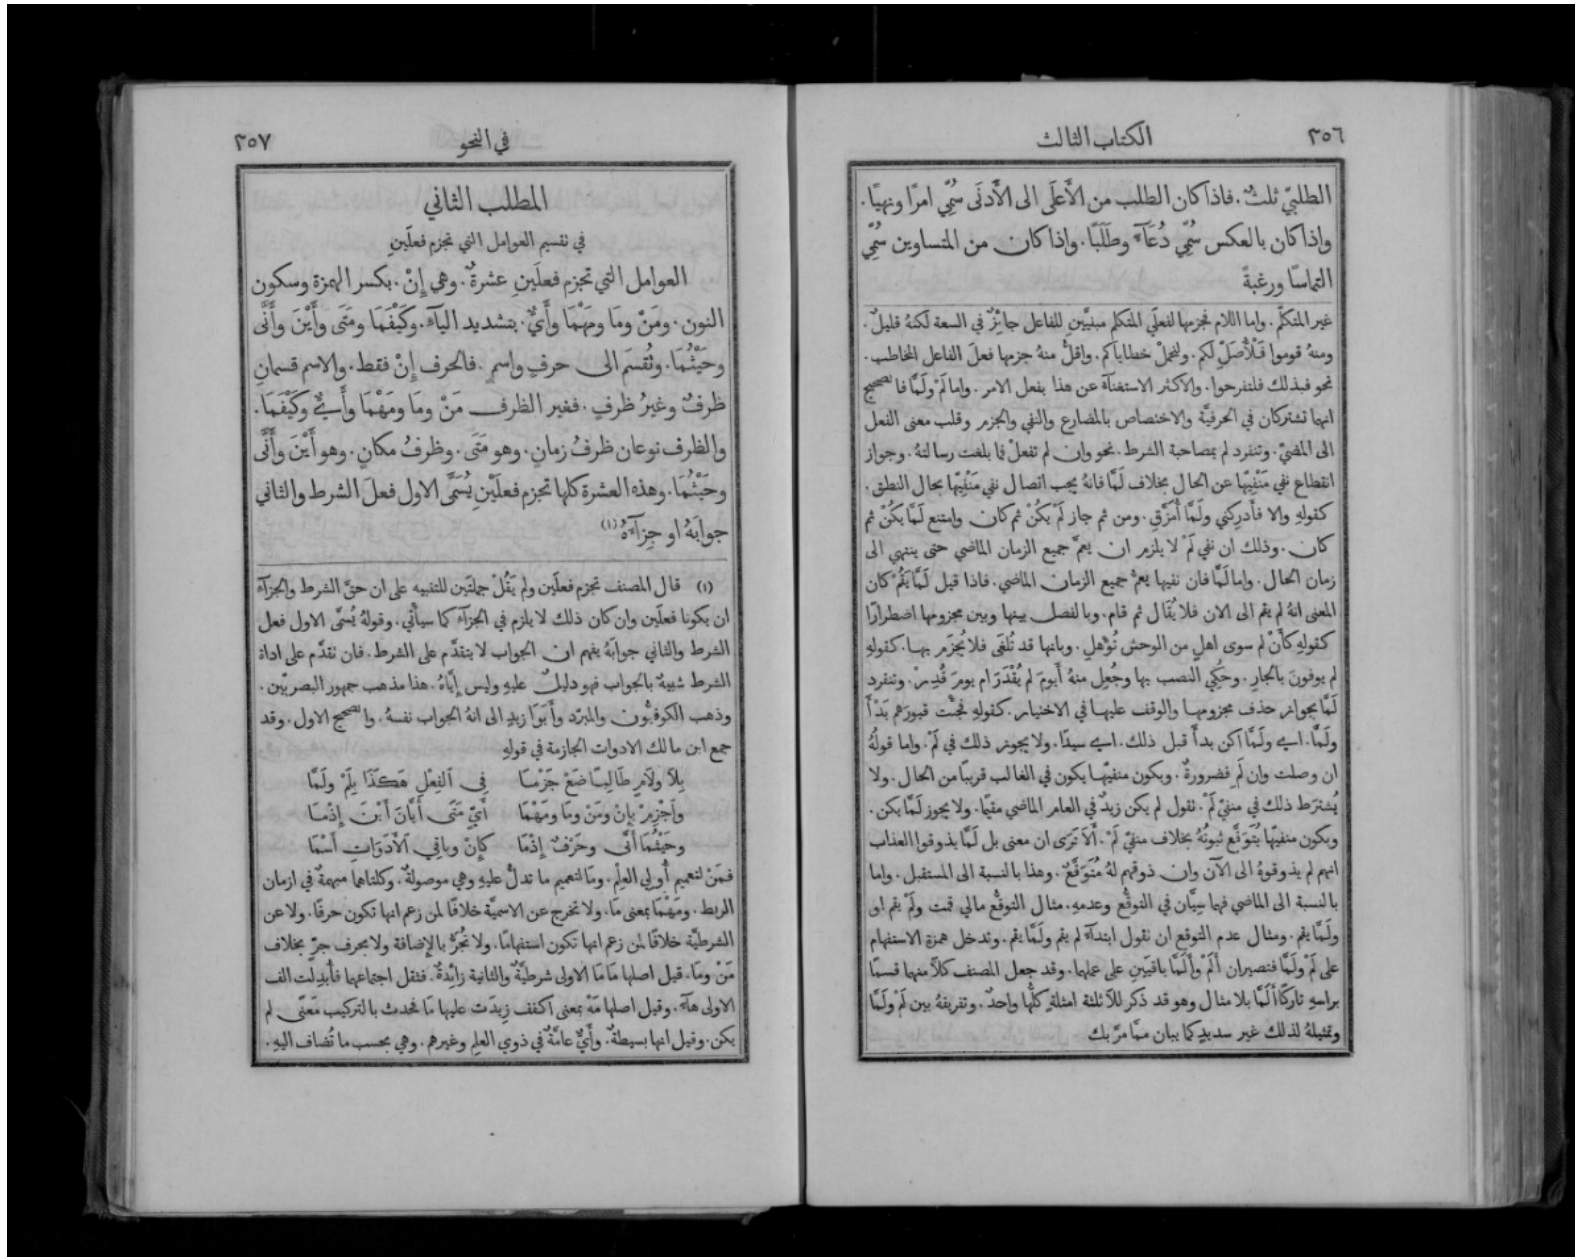 ٣٥٦
الكتاب الثالث
الطلبيّ ثلثٌ. فاذا كان الطلب من الأَعلَى الى الأَدنَى سُمِّي امرًا ونهيًا.
واذا كان بالعكس سُمِّي دُعَآءً وطَلَبًا. واذا كان من المتساوين سُمِّي
التماسًا ورغبةً
غير المتكلّم. واما اللام فجزمها لفعلَي المتكلم مبنيَّينِ للفاعل جائزٌ في السعة لكنهُ قليلٌ.
ومنهُ قوموا فَلْأُصَلِّ لكم. ولنحملْ خطاياكم. واقلُّ منهُ جزمها فعلَ الفاعل المخاطب.
نحو فبذلك فلتفرحوا. والاكثر الاستغنآءُ عن هذا بفعل الامر. واما لَمْ ولَمَّا فالصحيح
انهما تشتركان في الحرفيَّة والاختصاص بالمضارع والنفي والجزم وقلب معنى الفعل
الى المضيّ. وتنفرد لم بمصاحبة الشرط. نحو وان لم تفعلْ فما بلغت رسالتهُ. وجواز
انقطاع نفي مَنْفِيّها عن الحال بخلاف لَمَّا فانهُ يجب اتصال نفي مَنْفِيّها بحال النطق.
كقولهِ والا فأَدركني ولَمَّا أُمَزَّقِ. ومن ثم جاز لَمْ يكُنْ ثم كان وامتنع لَمَّا يكُنْ ثم
كان. وذلك ان نفي لَمْ لا يلزم ان يعمّ جميع الزمان الماضي حتى ينتهي الى
زمان الحال. واما لَمَّا فان نفيها يعمُّ جميع الزمان الماضي. فاذا قيل لَمَّا يقُمْ كان
المعنى انهُ لم يقم الى الان فلا يُقَال ثم قام. وبالفصل بينها وبين مجزومها اضطرارًا
كقولهِ كأَنْ لم سوى اهلٍ من الوحش تُؤْهلِ. وبانها قد تُلغَى فلا يُجزَم بها. كقولهِ
لم يوفونَ بالجارِ. وحُكِي النصب بها وجُعِل منهُ أَيومَ لم يُقْدَرَ ام يومَ قُدِرْ. وتنفرد
لَمَّا بجواز حذف مجزومها والوقف عليها في الاختيار. كقولهِ فجئت قبورَهم بَدْأً
ولَمَّا. اي ولَمَّا اكن بدأً قبل ذلك. اي سيدًا. ولا يجوز ذلك في لَمْ. واما قولهُ
ان وصلت وان لَمِ فضرورةٌ. ويكون منفيّها يكون في الغالب قريبًا من الحال. ولا
يُشترَط ذلك في منفيّ لَمْ. تقول لم يكن زيدٌ في العام الماضي مقيمًا. ولا يجوز لَمَّا يكن.
ويكون منفيّها يُتَوَقَّع ثبوتُهُ بخلاف منفيّ لَمْ. أَلَا تَرَى ان معنى بل لَمَّا يذوقوا العذاب
انهم لم يذوقوهُ الى الآن وان ذوقهم لهُ مُتَوَقَّعٌ. وهذا بالنسبة الى المستقبل. واما
بالنسبة الى الماضي فهما سِيَّان في التوقُّع وعدمهِ. مثال التوقُّع مالي قمت ولَمْ يقم او
ولَمَّا يقم. ومثال عدم التوقع ان نقول ابتدآءً لم يقم ولَمَّا يقم. وتدخل همزة الاستفهام
على لَمْ ولَمَّا فتصيران أَلَمْ وأَلَمَّا باقيَينِ على عملهما. وقد جعل المصنف كلًّا منهما قسمًا
براسهِ تاركًا أَلَمَّا بلا مثال وهو قد ذكر للثلثة امثلةٍ كلُّها واحدٌ. وتفريقهُ بين لَمْ ولَمَّا
وتمثيلهُ لذلك غير سديدٍ كما يبان ممَّا مرَّ بك
في النحو
٣٥٧
المطلب الثاني
في تقسيم العوامل التي تجزم فعلَينِ
العوامل التي تجزم فعلَينِ عشرةٌ. وهي إِنْ. بكسر الهمزة وسكون
النون. ومَنْ ومَا ومَهْمَا وأَيٌّ. بتشديد اليآءِ. وكَيْفَمَا ومَتَى وأَيْنَ وأَنَّى
وحَيْثُمَا. وتُقسَم الى حرفٍ واسمٍ. فالحرف إِنْ فقط. والاسم قسمانِ
ظرفٌ وغيرُ ظرفٍ. فغير الظرف مَنْ ومَا ومَهْمَا وأَيٌّ وكَيْفَمَا.
والظرف نوعان ظرفُ زمانٍ. وهو مَتَى. وظرفُ مكانٍ. وهو أَيْنَ وأَنَّى
وحَيْثُمَا. وهذه العشرة كلها تجزم فعلَيْنِ يُسَمَّى الاول فعلَ الشرط والثاني
جوابَهُ او جزآءَهُ (١)
(١) قال المصنف تجزم فعلَين ولم يَقُلْ جملتَين للتنبيه على ان حقَّ الشرط والجزآءِ
ان يكونا فعلَين وان كان ذلك لا يلزم في الجزآءِ كما سيأتي. وقولهُ يُسَمَّى الاول فعل
الشرط والثاني جوابَهُ يفهم ان الجواب لا يتقدَّم على الشرط. فان تقدَّم على اداة
الشرط شبيهٌ بالجواب فهو دليلٌ عليهِ وليس إِيَّاهُ. هذا مذهب جمهور البصريّين.
وذهب الكوفيُّون والمبرّد وأَبوا زيدٍ الى انهُ الجواب نفسهُ. والصحيح الاول. وقد
جمع ابن مالك الادوات الجازمة في قولهِ
بِلَا ولَامٍ طَالِبًا ضَعْ جَزْمَا في ٱلفِعْلِ هَكَذَا بِلَمْ ولَمَّا
وٱجْزِمْ بِإِنْ ومَنْ ومَا ومَهْمَا أَيٍّ مَتَى أَيَّانَ أَيْنَ إِذْمَا
وحَيْثُمَا أَنَّى وحَرْفٌ إِذْمَا كإِنْ وباقِي ٱلأَدَوَاتِ أَسْمَا
فمَنْ لتعميم أُولي العِلْم. ومَا لتعميم ما تدلُّ عليهِ وهي موصولةٌ. وكلتاهما مبهمةٌ في ازمان
الربط. ومَهْمَا بمعنى مَا. ولا تخرج عن الاسميَّة خلافًا لمن زعم انها تكون حرفًا. ولا عن
الشرطيَّة خلافًا لمن زعم انها تكون استفهامًا. ولا تُجَرُّ بالإضافة ولا بحرف جرٍّ بخلاف
مَنْ ومَا. قيل اصلها مَا مَا الاولى شرطيَّةٌ والثانية زائدةٌ. فثقل اجتماعهما فأُبدِلت الف
الاولى هآءً. وقيل اصلها مَهْ بمعنى اكفف زِيدَت عليها مَا فحدث بالتركيب مَعْنًى لم
يكن. وقيل انها بسيطةٌ. وأَيٌّ عامَّةٌ في ذوي العلم وغيرهم. وهي بحسب ما تُضاف اليهِ.